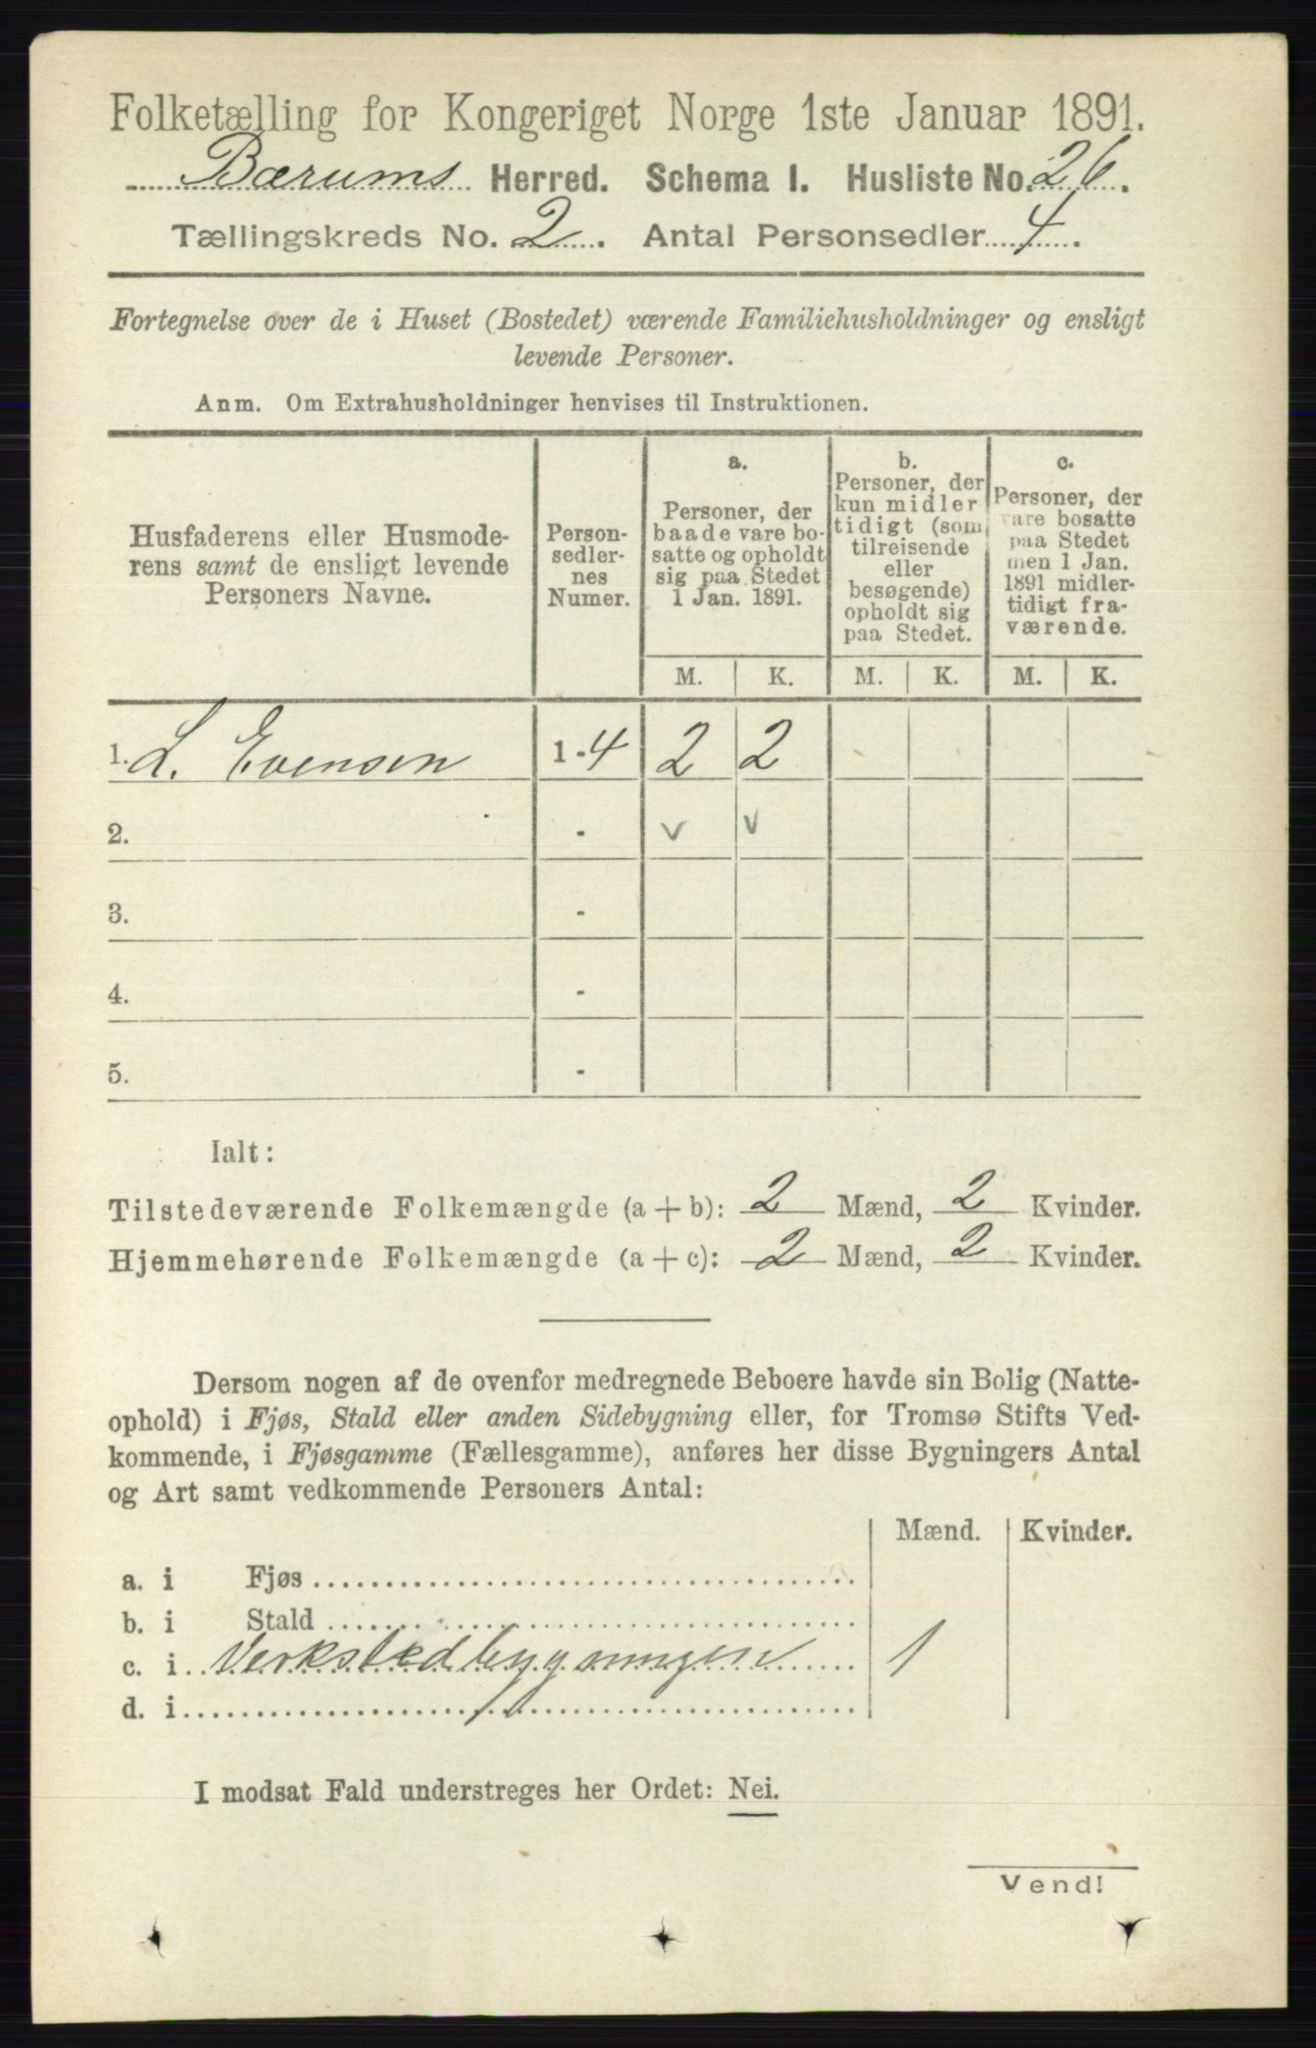 Folketælling for Kongeriget Norge 1ste Januar 1891.
Bærums Herred. Schema I. Husliste No. 26.
Tællingskreds No. 2. Antal Personsedler 4.
Fortegnelse over de i Huset (Bostedet) værende Familiehusholdninger og ensligt
levende Personer.
Anm. Om Extrahusholdninger henvises til Instruktionen.
Husfaderens eller Husmode-
rens samt de ensligt levende
Personers Navne.
Person-
sedler-
nes
Numer.
a.
Personer, der
baade vare bo-
satte og opholdt
sig paa Stedet
1 Jan. 1891.
b.
Personer, der
kun midler
tidigt (som
tilreisende
eller
besøgende)
opholdt sig
paa Stedet.
c.
Personer, der
vare bosatte
paa Stedet
men 1 Jan.
1891 midler-
tidigt fra-
værende.
M. K. M. K. M. K.
1. L. Evensen 1-4 2 2
2. - v v
3. -
4. -
5. -
Ialt:
Tilstedeværende Folkemængde (a + b): 2 Mænd, 2 Kvinder.
Hjemmehørende Folkemængde (a + c): 2 Mænd, 2 Kvinder.
Dersom nogen af de ovenfor medregnede Beboere havde sin Bolig (Natte-
ophold) i Fjøs, Stald eller anden Sidebygning eller, for Tromsø Stifts Ved-
kommende, i Fjøsgamme (Fællesgamme), anføres her disse Bygningers Antal
og Art samt vedkommende Personers Antal:
Mænd. Kvinder.
a. i Fjøs
b. i Stald
c. i Verkstedbygningen 1
d. i
I modsat Fald understreges her Ordet: Nei.
Vend!